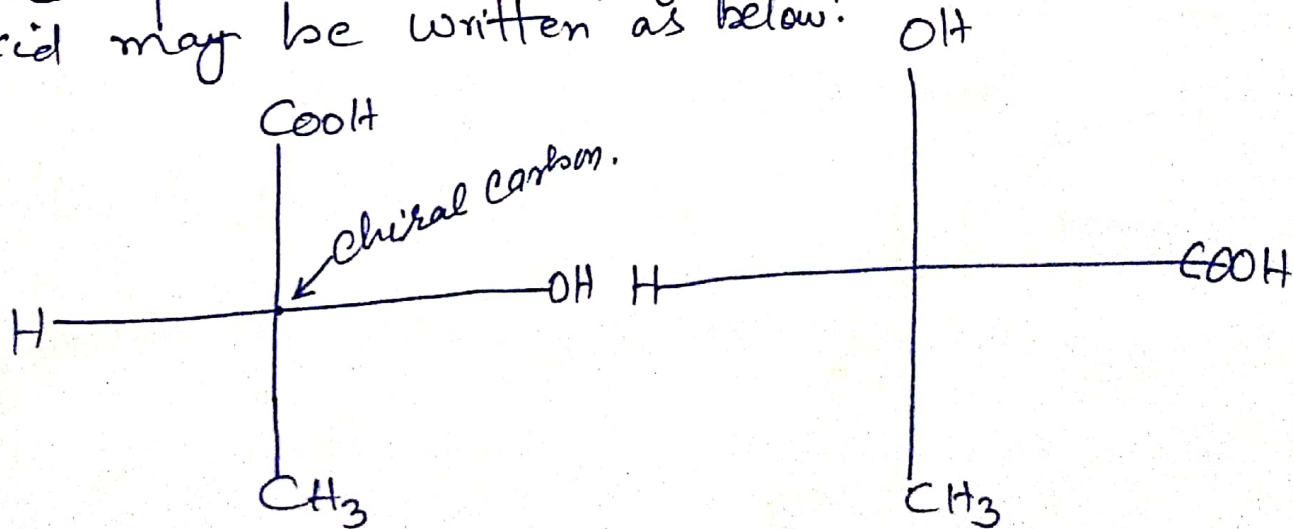 may be written as below:
OH
COOH
chiral carbon.
H
OH
H
COOH
CH3
CH3